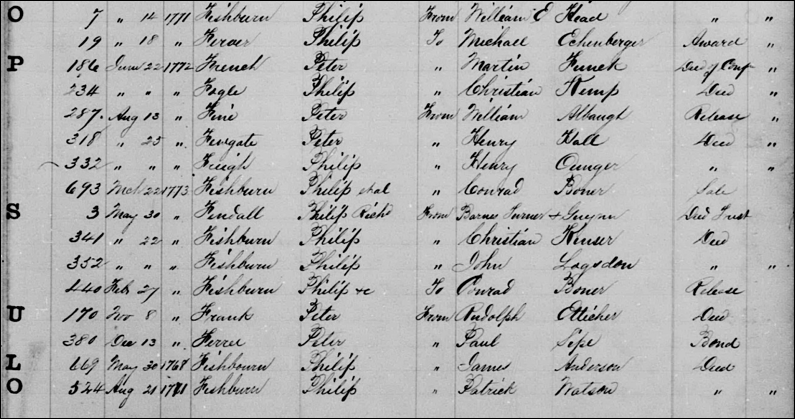 O 7 " 14 1771 Fishburn Philip From William E Head " "
19 " 18 " Ferver Philip To Michael Echenberger Award "
P 186 June 22 1772 French Peter " Martin Funck Deed of Conf "
234 " " " Fogle Philip " Christian Kemp Deed "
287 Aug 13 " Fine Peter From William Albaugh Release "
318 " 25 " Fewgate Peter " Henry Hall Deed "
332 " " " Philip " Henry " "
693 Mch 22 1773 Fishburn Philip et al " Conrad Boner Sale
S 3 May 30 " Fendall Philip Richd From Barnes Turner & Gwynn Deed Trust
341 " 22 " Fishburn Philip " Christian Kinser Deed
352 " " " Fishburn Philip " John Logsdon " "
440 Feb 27 " Fishburn Philip &c To Conrad Boner Release
U 170 Nov 8 " Frank Peter From Rudolph Etticher Deed
380 Dec 13 " Ferree Peter " Paul Sipe Bond
L 669 May 30 1768 Fishbourn Philip " James Anderson Deed
O 524 Aug 21 1771 Fishburn Philip " Patrick Watson " "